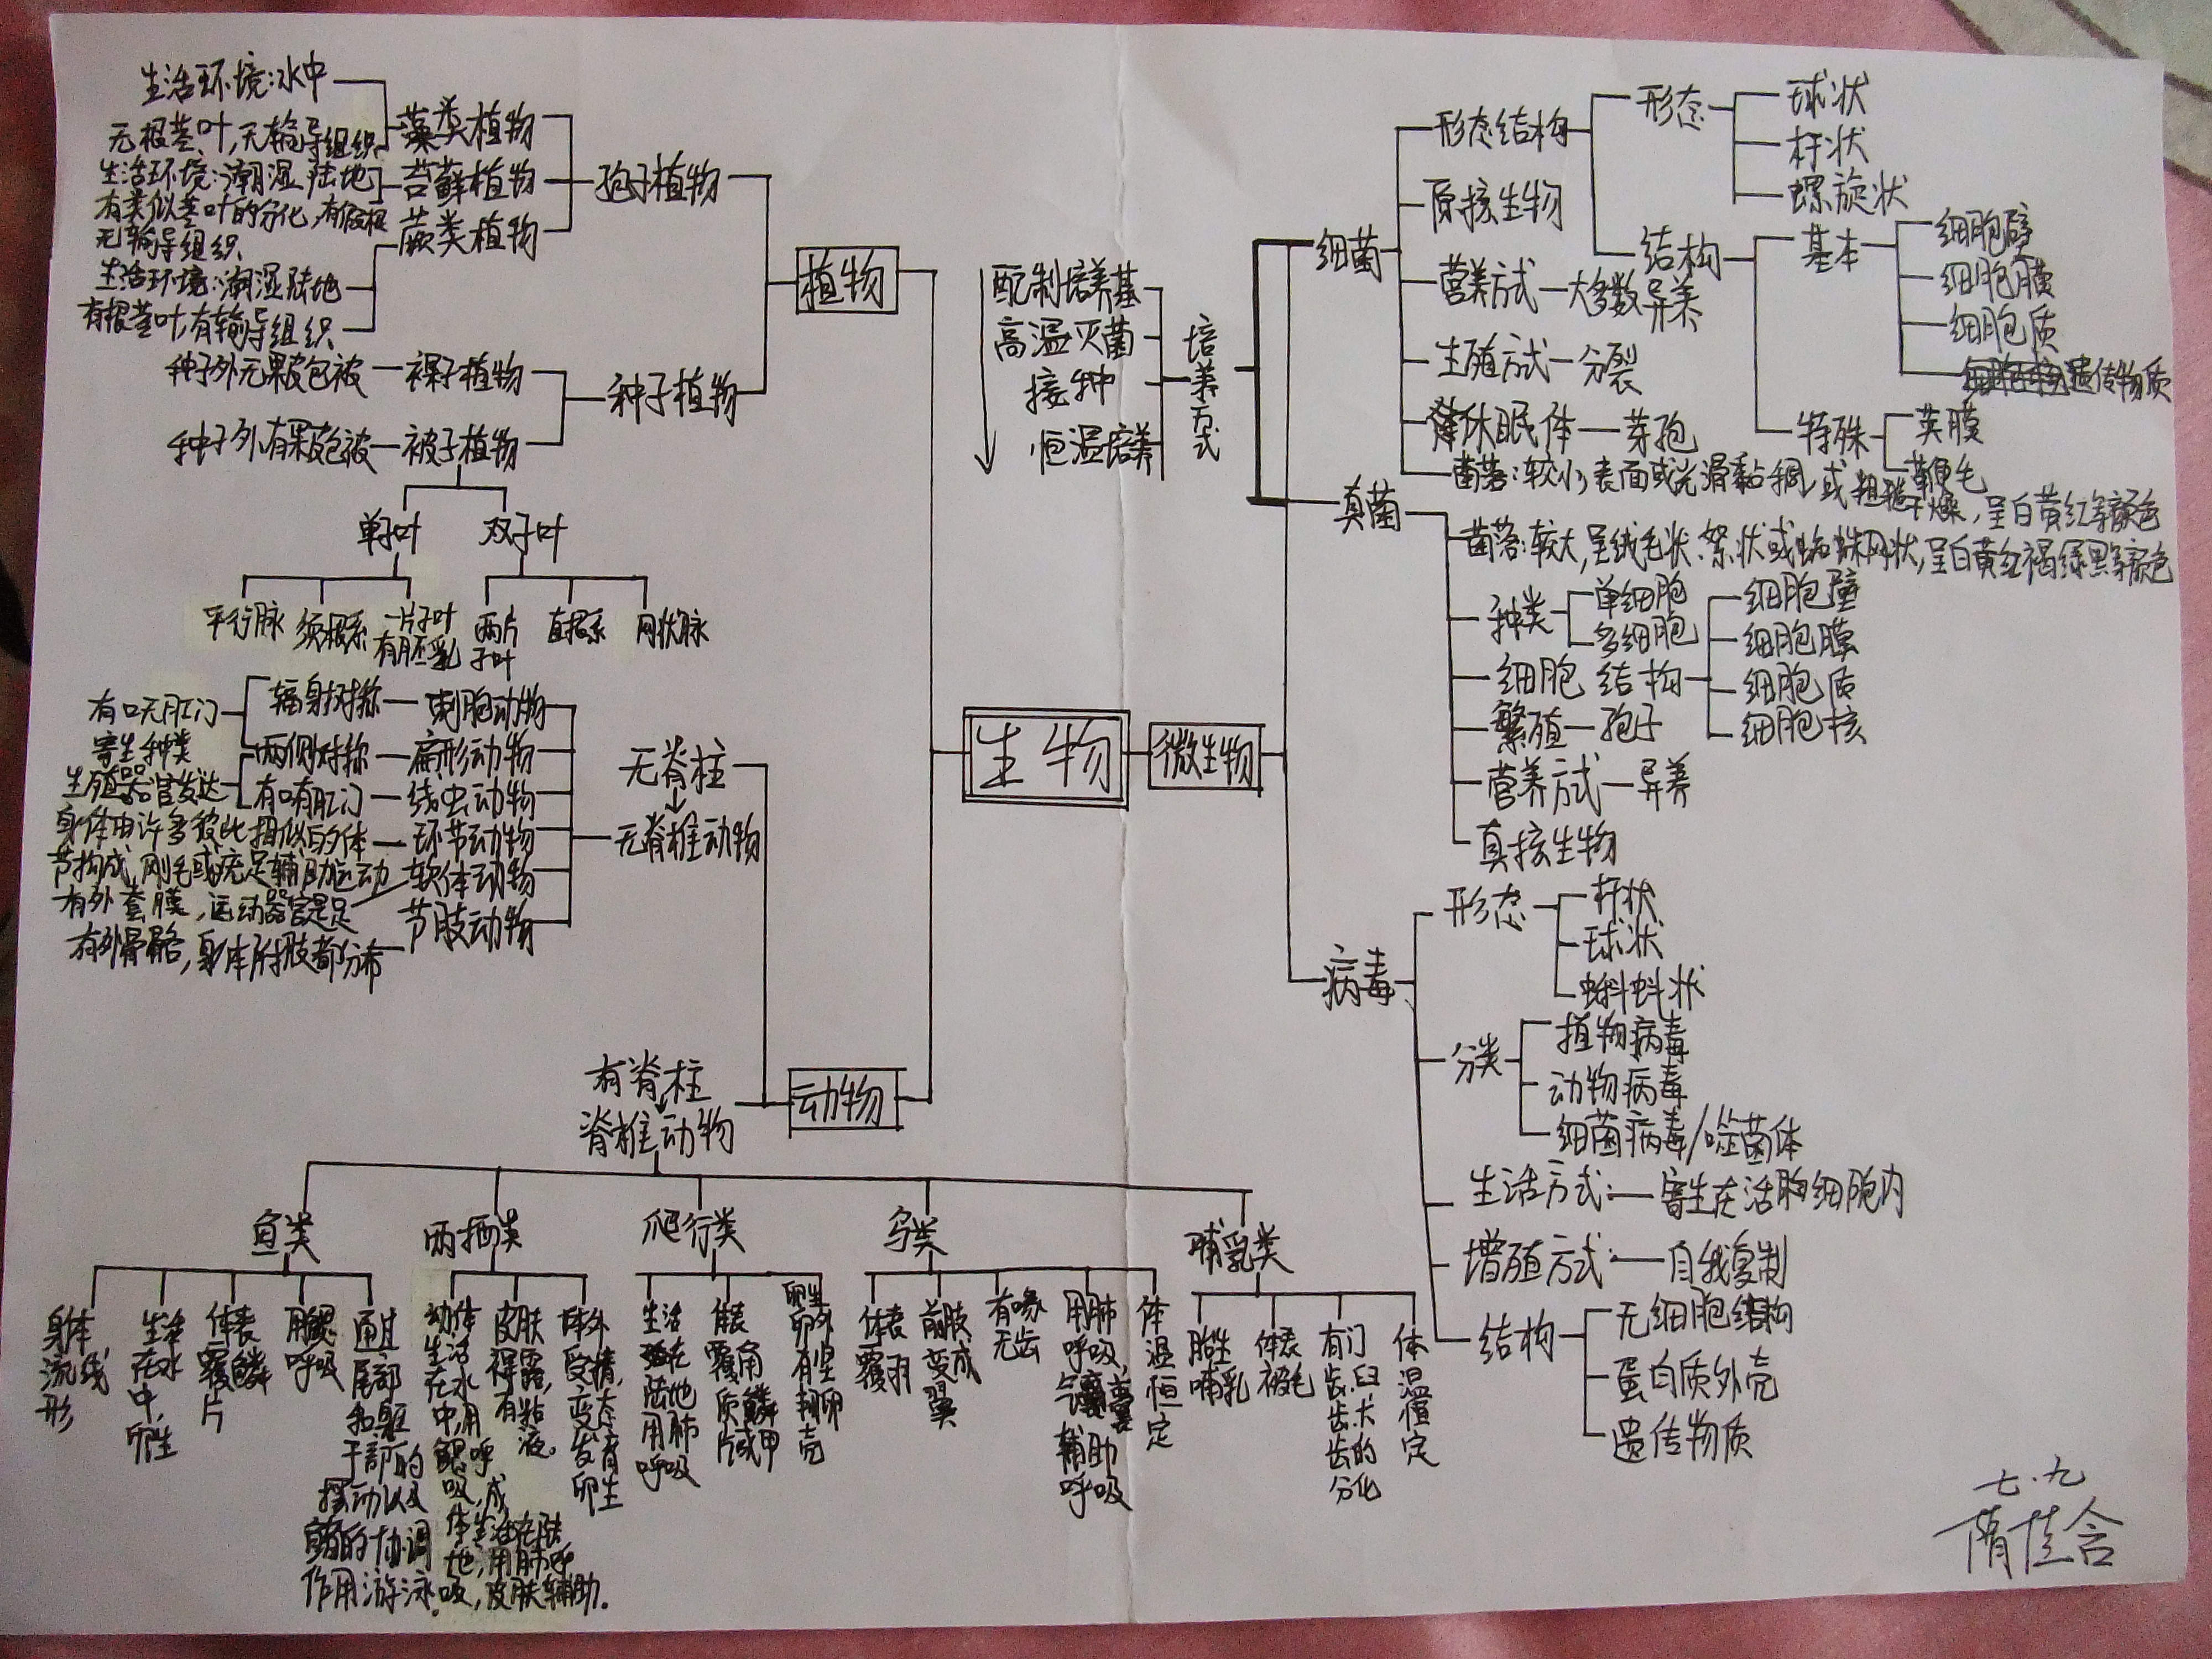 生物
植物
孢子植物
藻类植物
生活环境:水中
无根茎叶,无输导组织
苔藓植物
生活环境:潮湿陆地
有类似茎叶的分化,有假根
无输导组织
蕨类植物
生活环境:潮湿陆地
有根茎叶,有输导组织
种子植物
裸子植物
种子外无果皮包被
被子植物
种子外有果皮包被
单子叶
平行脉
须根系
一片子叶
有胚乳
双子叶
两片
子叶
直根系
网状脉
动物
无脊柱
无脊椎动物
刺胞动物
辐射对称
有口无肛门
扁形动物
两侧对称
寄生种类
生殖器官发达
线虫动物
有口有肛门
环节动物
身体由许多彼此相似的体
节构成,刚毛或疣足辅助运动
软体动物
有外套膜,运动器官是足
节肢动物
有外骨骼,身体附肢都分布
有脊柱
脊椎动物
鱼类
身体
流线
形
生活
在水
中,
卵生
体表
覆鳞
片
用鳃
呼吸
通过
尾部
和躯
干部的
摆动以及
鳍的协调
作用游泳.
两栖类
幼体
生活
在水
中,用
鳃呼
吸,成
体生活在陆
地,用肺呼
吸,皮肤辅助.
皮肤
裸露,
有粘
液.
体外
受精,
变态
发育
卵生
爬行类
生活
在
陆地
用肺
呼吸
体表
覆角
质鳞
片或甲
卵生
卵外
有坚
韧卵
壳
鸟类
体表
覆羽
前肢
变成
翼
有喙
无齿
用肺
呼吸,
气囊
辅助
呼吸
体
温
恒
定
哺乳类
胎生
哺乳
体表
被毛
有门
齿.臼
齿.犬
齿的
分化
体
温
恒
定
微生物
培养方式
配制培养基
高温灭菌
接种
恒温培养
细菌
形态结构
形态
球状
杆状
螺旋状
结构
基本
细胞壁
细胞膜
细胞质
遗传物质
特殊
荚膜
鞭毛
原核生物
营养方式—大多数异养
生殖方式—分裂
休眠体—芽孢
菌落:较小,表面或光滑黏稠,或粗糙干燥,呈白黄红等颜色
真菌
菌落:较大,呈绒毛状.絮状或蜘蛛网状,呈白黄红褐绿黑等颜色
种类
单细胞
多细胞
细胞结构
细胞壁
细胞膜
细胞质
细胞核
繁殖—孢子
营养方式—异养
真核生物
病毒
形态
杆状
球状
蝌蚪状
分类
植物病毒
动物病毒
细菌病毒/噬菌体
生活方式:—寄生在活胞细胞内
增殖方式:—自我复制
结构
无细胞结构
蛋白质外壳
遗传物质
七.九
隋佳含